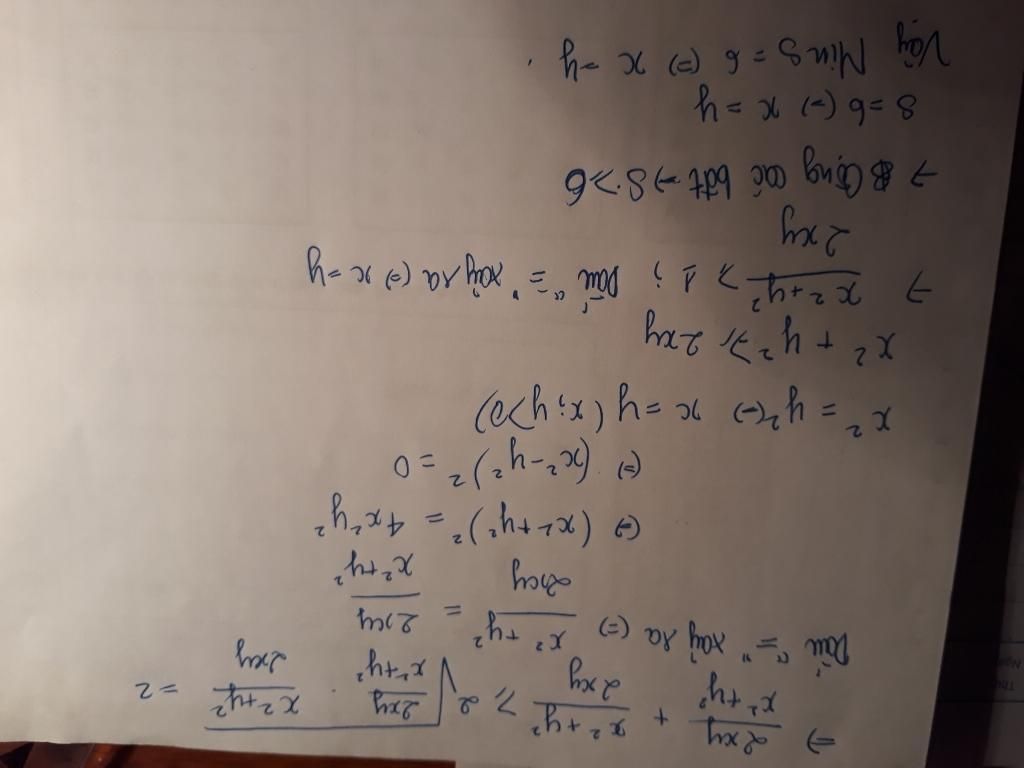 => 2xy/(x²+y²) + (x²+y²)/2xy ≥ 2√(2xy/(x²+y²) · (x²+y²)/2xy) = 2
Dấu "=" xảy ra (=) (x²+y²)/2xy = 2xy/(x²+y²)
(=) (x²+y²)² = 4x²y²
(=) (x²-y²)² = 0
x² = y² (=) x = y (x; y > 0)
x² + y² ≥ 2xy
→ (x²+y²)/2xy ≥ 1 ; Dấu "=" xảy ra (=) x = y
→ Cộng các bđt → S ≥ 6
S = 6 (=) x = y
Vậy Min S = 6 (=) x = y.